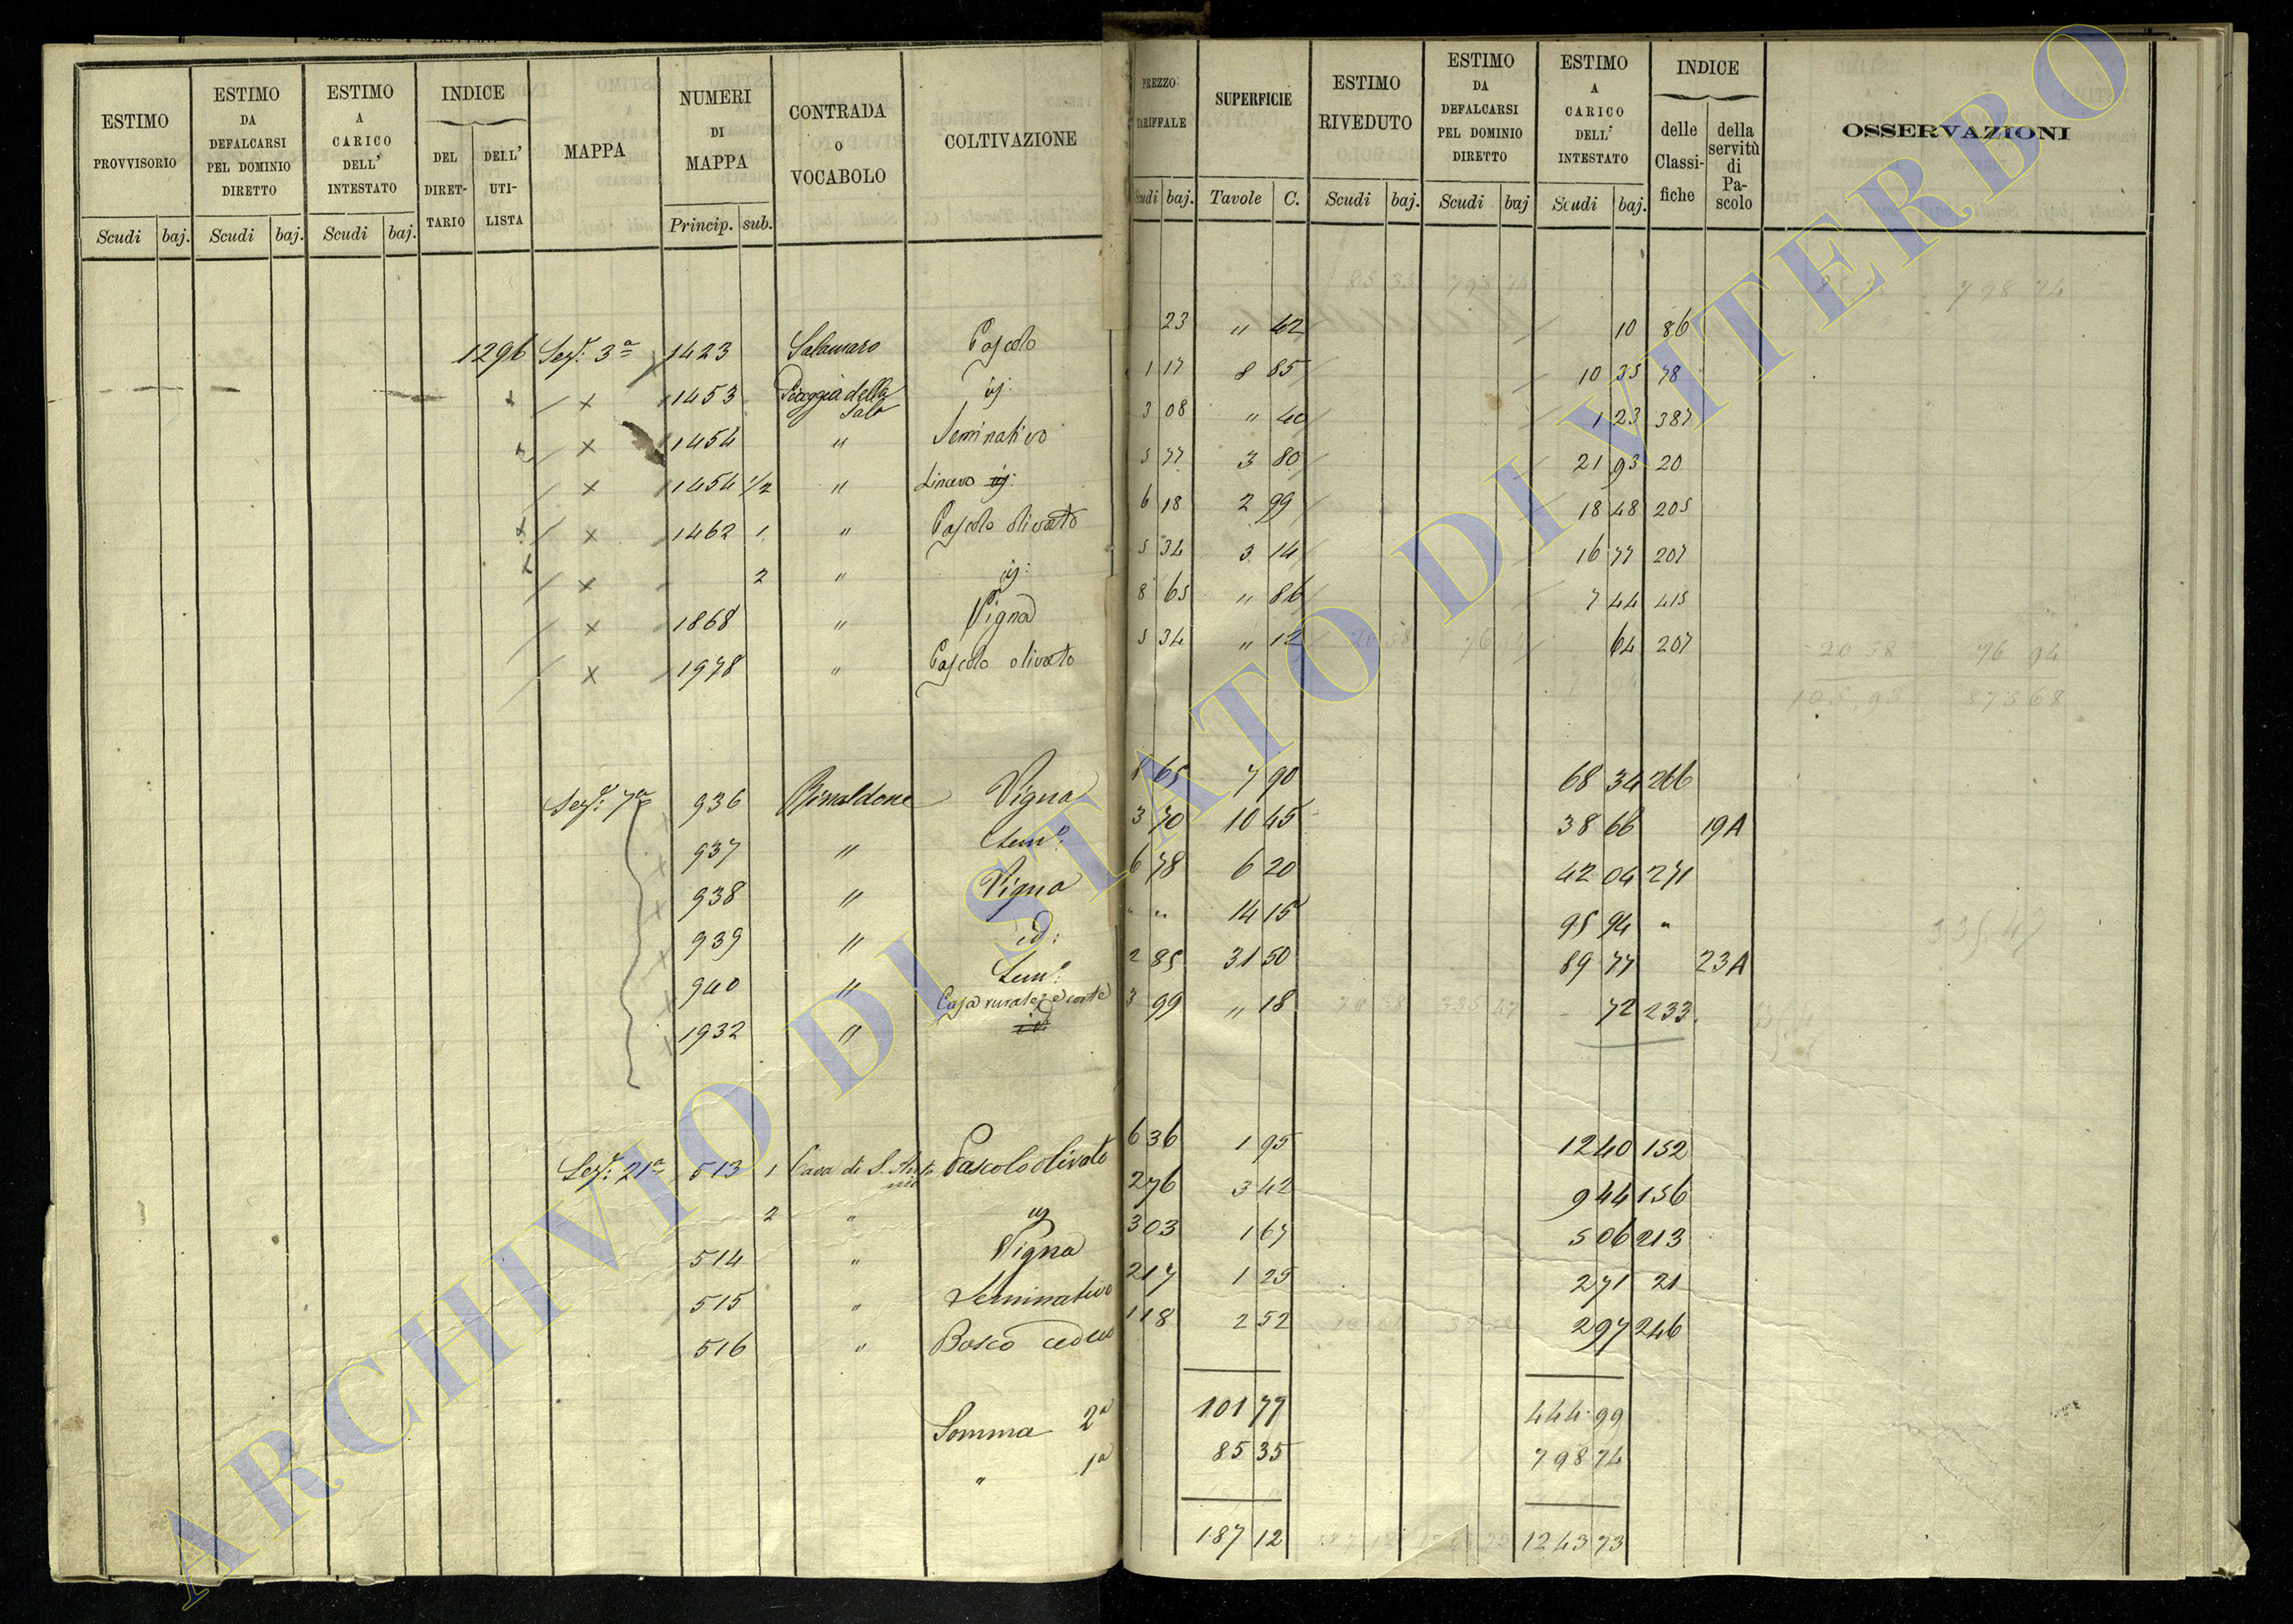 ESTIMO PROVVISORIO | ESTIMO DA DEFALCARSI PEL DOMINIO DIRETTO | ESTIMO A CARICO DELL' INTESTATO | INDICE DEL DIRETTARIO | DELL' UTILISTA | MAPPA | NUMERI DI MAPPA | CONTRADA O VOCABOLO | COLTIVAZIONE | PREZZO TARIFFALE | SUPERFICIE | ESTIMO RIVEDUTO | ESTIMO DA DEFALCARSI PEL DOMINIO DIRETTO | ESTIMO A CARICO DELL' INTESTATO | INDICE delle Classifiche | della servitù di Pascolo | OSSERVAZIONI
Scudi | baj. | Scudi | baj. | Scudi | baj. | Princip. | sub. | Scudi | baj. | Tavole | C. | Scudi | baj. | Scudi | baj | Scudi | baj.
85 35 798 74
1296 Sez: 3a 1423 Salamaro Pascolo 23 " 42 10 86
x 1453 Piaggia della Sala id: 1 17 8 85 10 35 78
x 1454 " Seminativo 3 08 " 40 1 23 387
x 1454 1/2 " Linevo id: 5 77 3 80 21 93 20
x 1462 1 " Pascolo olivato 6 18 2 99 18 48 205
x 2 " id: 5 34 3 14 16 77 207
x 1868 " Vigna 8 65 " 86 7 44 415
x 1978 " Pascolo olivato 5 34 " 12 64 207
20 58 76 94
105,93 875 68
Sez: 7a 936 Rinaldone Vigna 8 65 7 90 68 34 266
937 " Semo: 3 70 10 45 38 66 19A
938 " Vigna 6 78 6 20 42 04 271
939 " id: " " 14 15 95 94 "
940 " Semo: 2 85 31 50 89 77 23A
1932 " Casa rurale e corte 3 99 " 18 72 233
335 47
Sez: 21a 513 1 Cava di S. Antonio Pascolo olivato 6 36 1 95 12 40 152
2 " id 2 76 3 42 9 44 156
514 " Vigna 3 03 1 67 5 06 213
515 " Seminativo 2 17 1 25 2 71 21
516 " Bosco ceduo 1 18 2 52 2 97 246
Somma 2a 101 77 444 99
" 1a 85 35 798 74
187 12 1243 73
ARCHIVIO DI STATO DI VITERBO